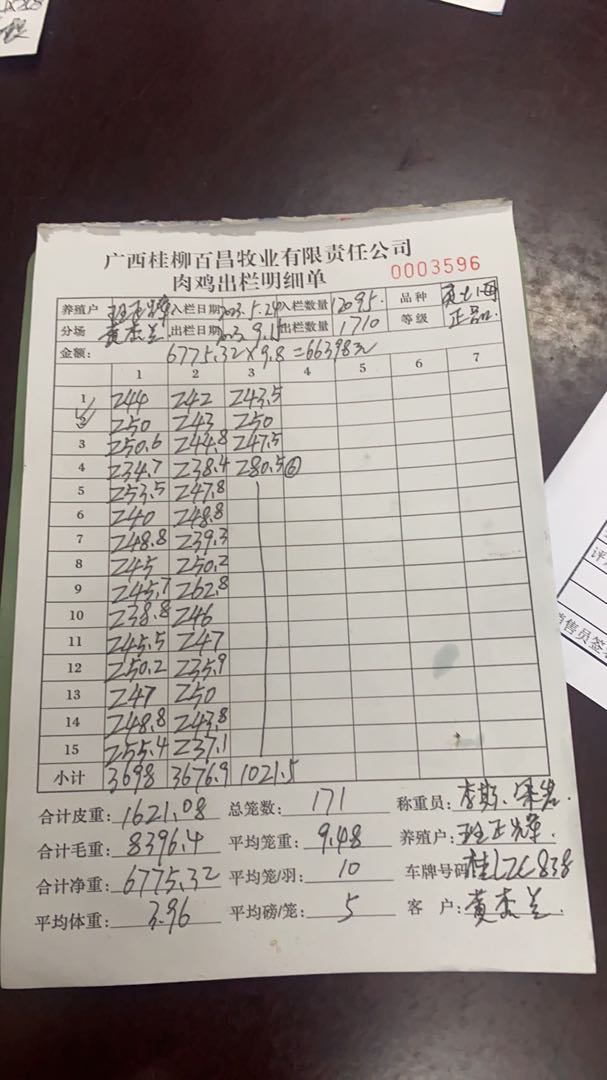 广西桂柳百昌牧业有限责任公司
肉鸡出栏明细单
0003596
养殖户 班正辉 入栏日期 2023.5.24 入栏数量 12095. 品种
分场 黄杰兰 出栏日期 2023.9.11 出栏数量 1710 等级 正品
金额: 6775.32×9.8=66398元
1 2 3 4 5 6 7
1 244 242 243.5
2 250 243 250
3 250.6 244.8 247.5
4 234.7 238.4 280.5 ⑥
5 253.5 247.8
6 240 248.8
7 248.8 239.3
8 245 250.2
9 245.7 262.8
10 238.8 246
11 245.5 247
12 250.2 235.9
13 247 250
14 248.8 243.8
15 255.4 237.1
小计 3698 3676.9 1021.5
合计皮重: 1621.08 总笼数: 171 称重员:
合计毛重: 8396.4 平均笼重: 9.48 养殖户: 班正辉.
合计净重: 6775.32 平均笼/羽: 10 车牌号码 桂L7C838
平均体重: 3.96 平均磅/笼: 5 客户: 黄杰兰.
销售员签